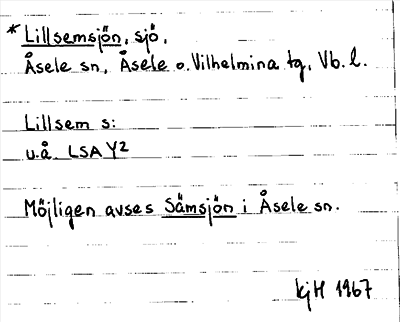 * Lillsemsjön, sjö,
Åsele sn, Åsele o. Vilhelmina tg, Vb. l.
Lillsem s:
u.å. LSA Y2
Möjligen avses Sämsjön i Åsele sn.
kjH 1967